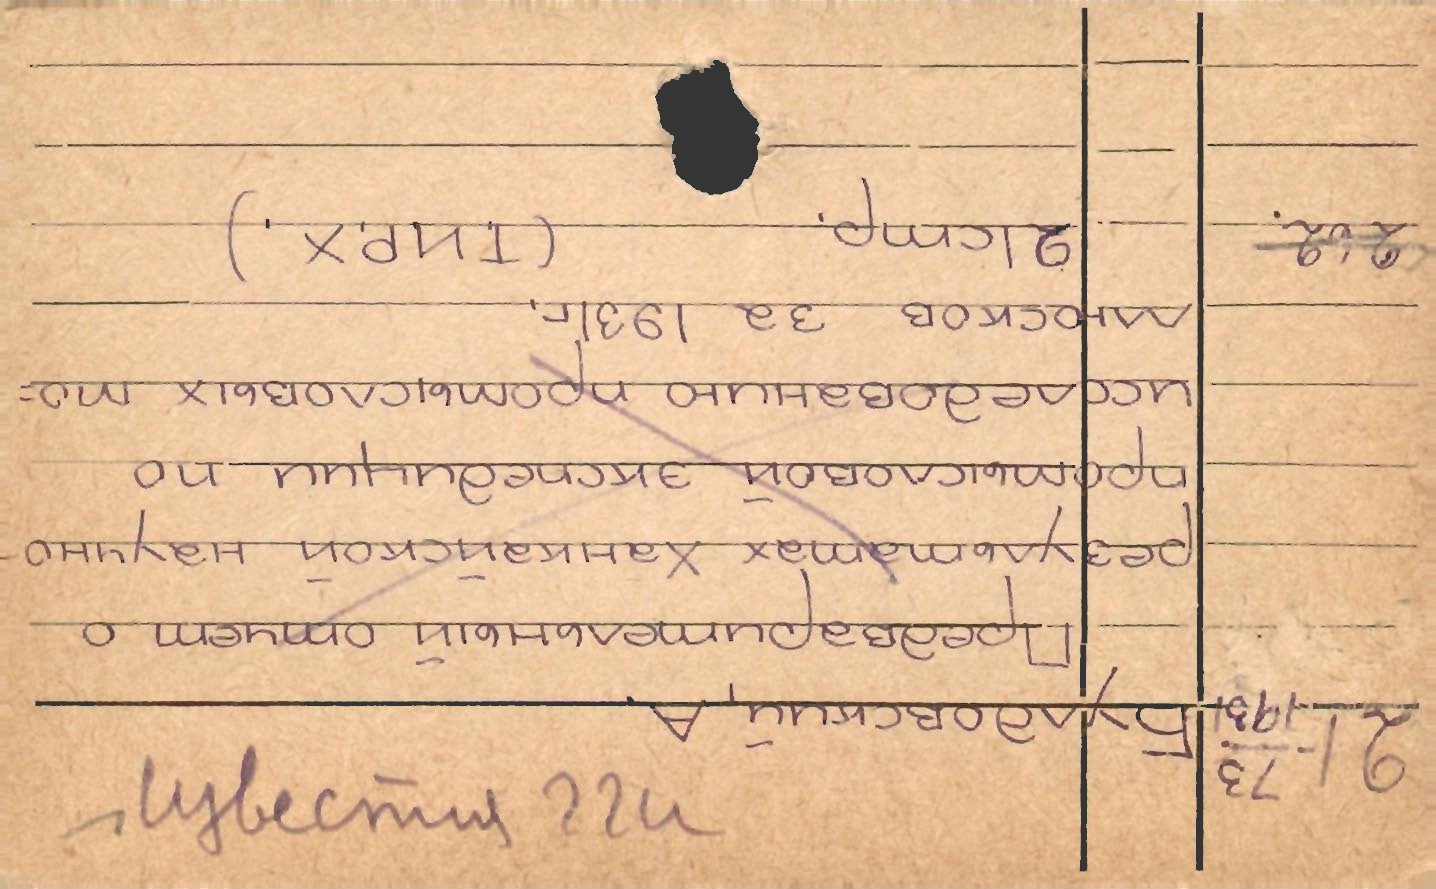 Булдовский, А.
21 73
1931
Предварительный отчет о
результатах Ханкайской научно-
промысловой экспедиции по
исследованию промысловых мо=
ллюсков за 1931г.
21 стр. (Т.И.Р.Х.)
Известия